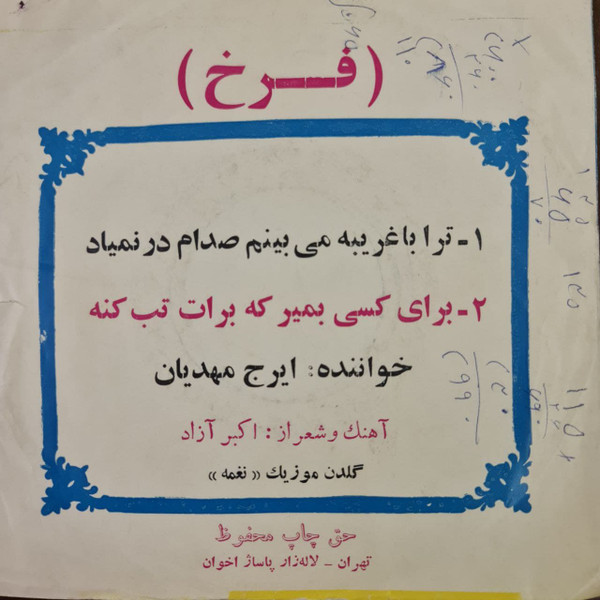 (فرخ)
۱- ترا با غریبه می بینم صدام در نمیاد
۲- برای کسی بمیر که برات تب کنه
خواننده: ایرج مهدیان
آهنك و شعر از: اکبر آزاد
گلدن موزیك «نغمه»
حق چاپ محفوظ
تهران - لاله‌زار پاساژ اخوان